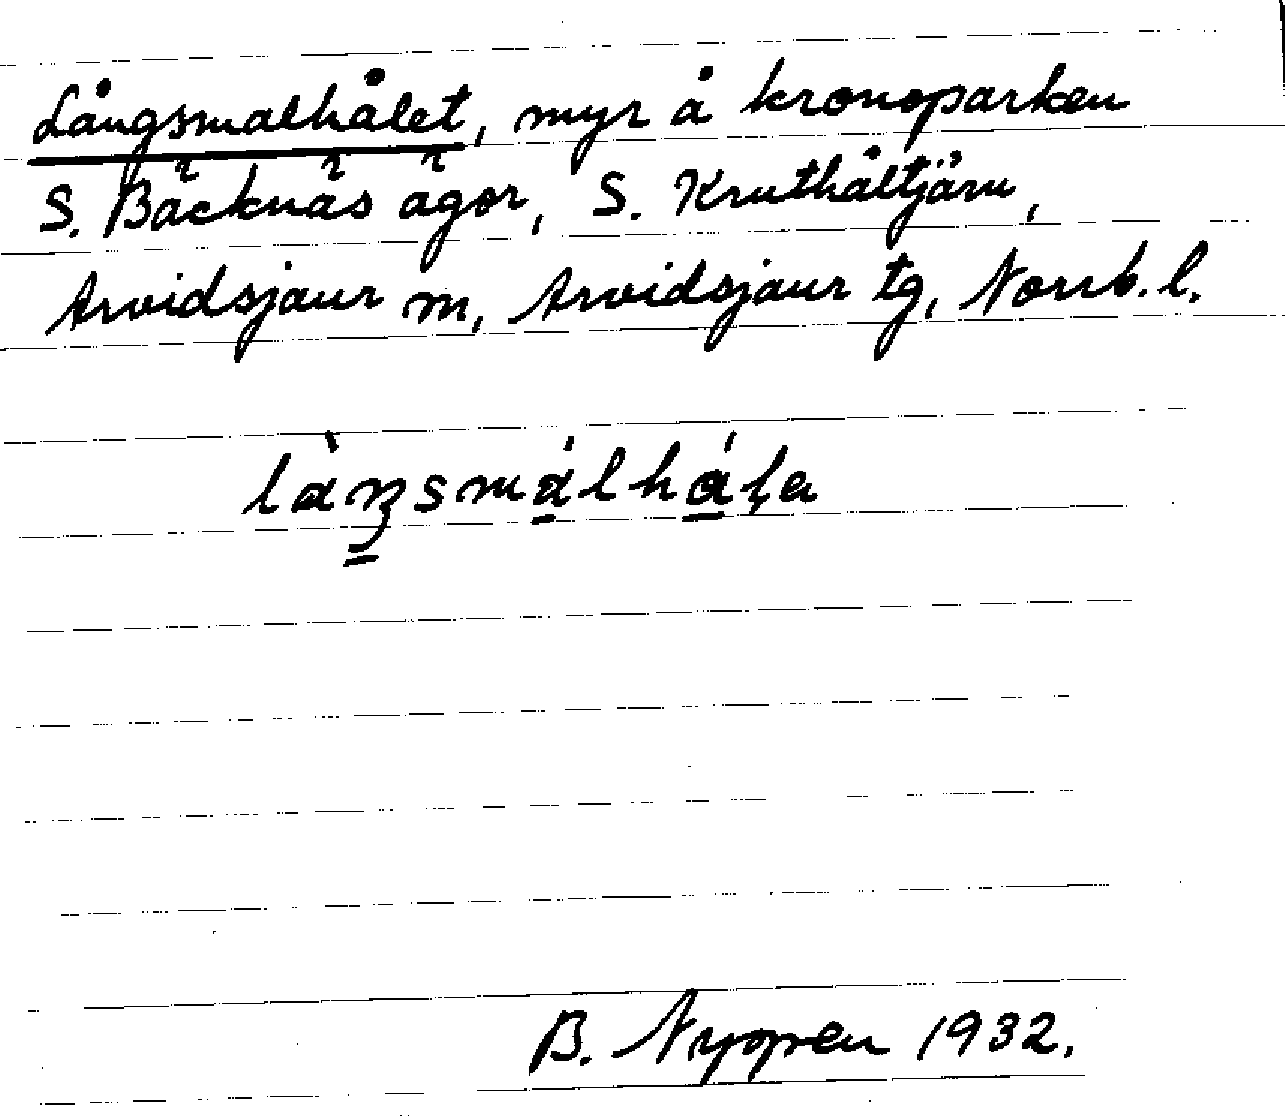 Långsmalhålet, myr å kronoparken
S. Bäcknäs ägor, S. Kruthåltjärn,
Arvidsjaur m, Arvidsjaur tg, Norrb. l.
B. Nyopren 1932.